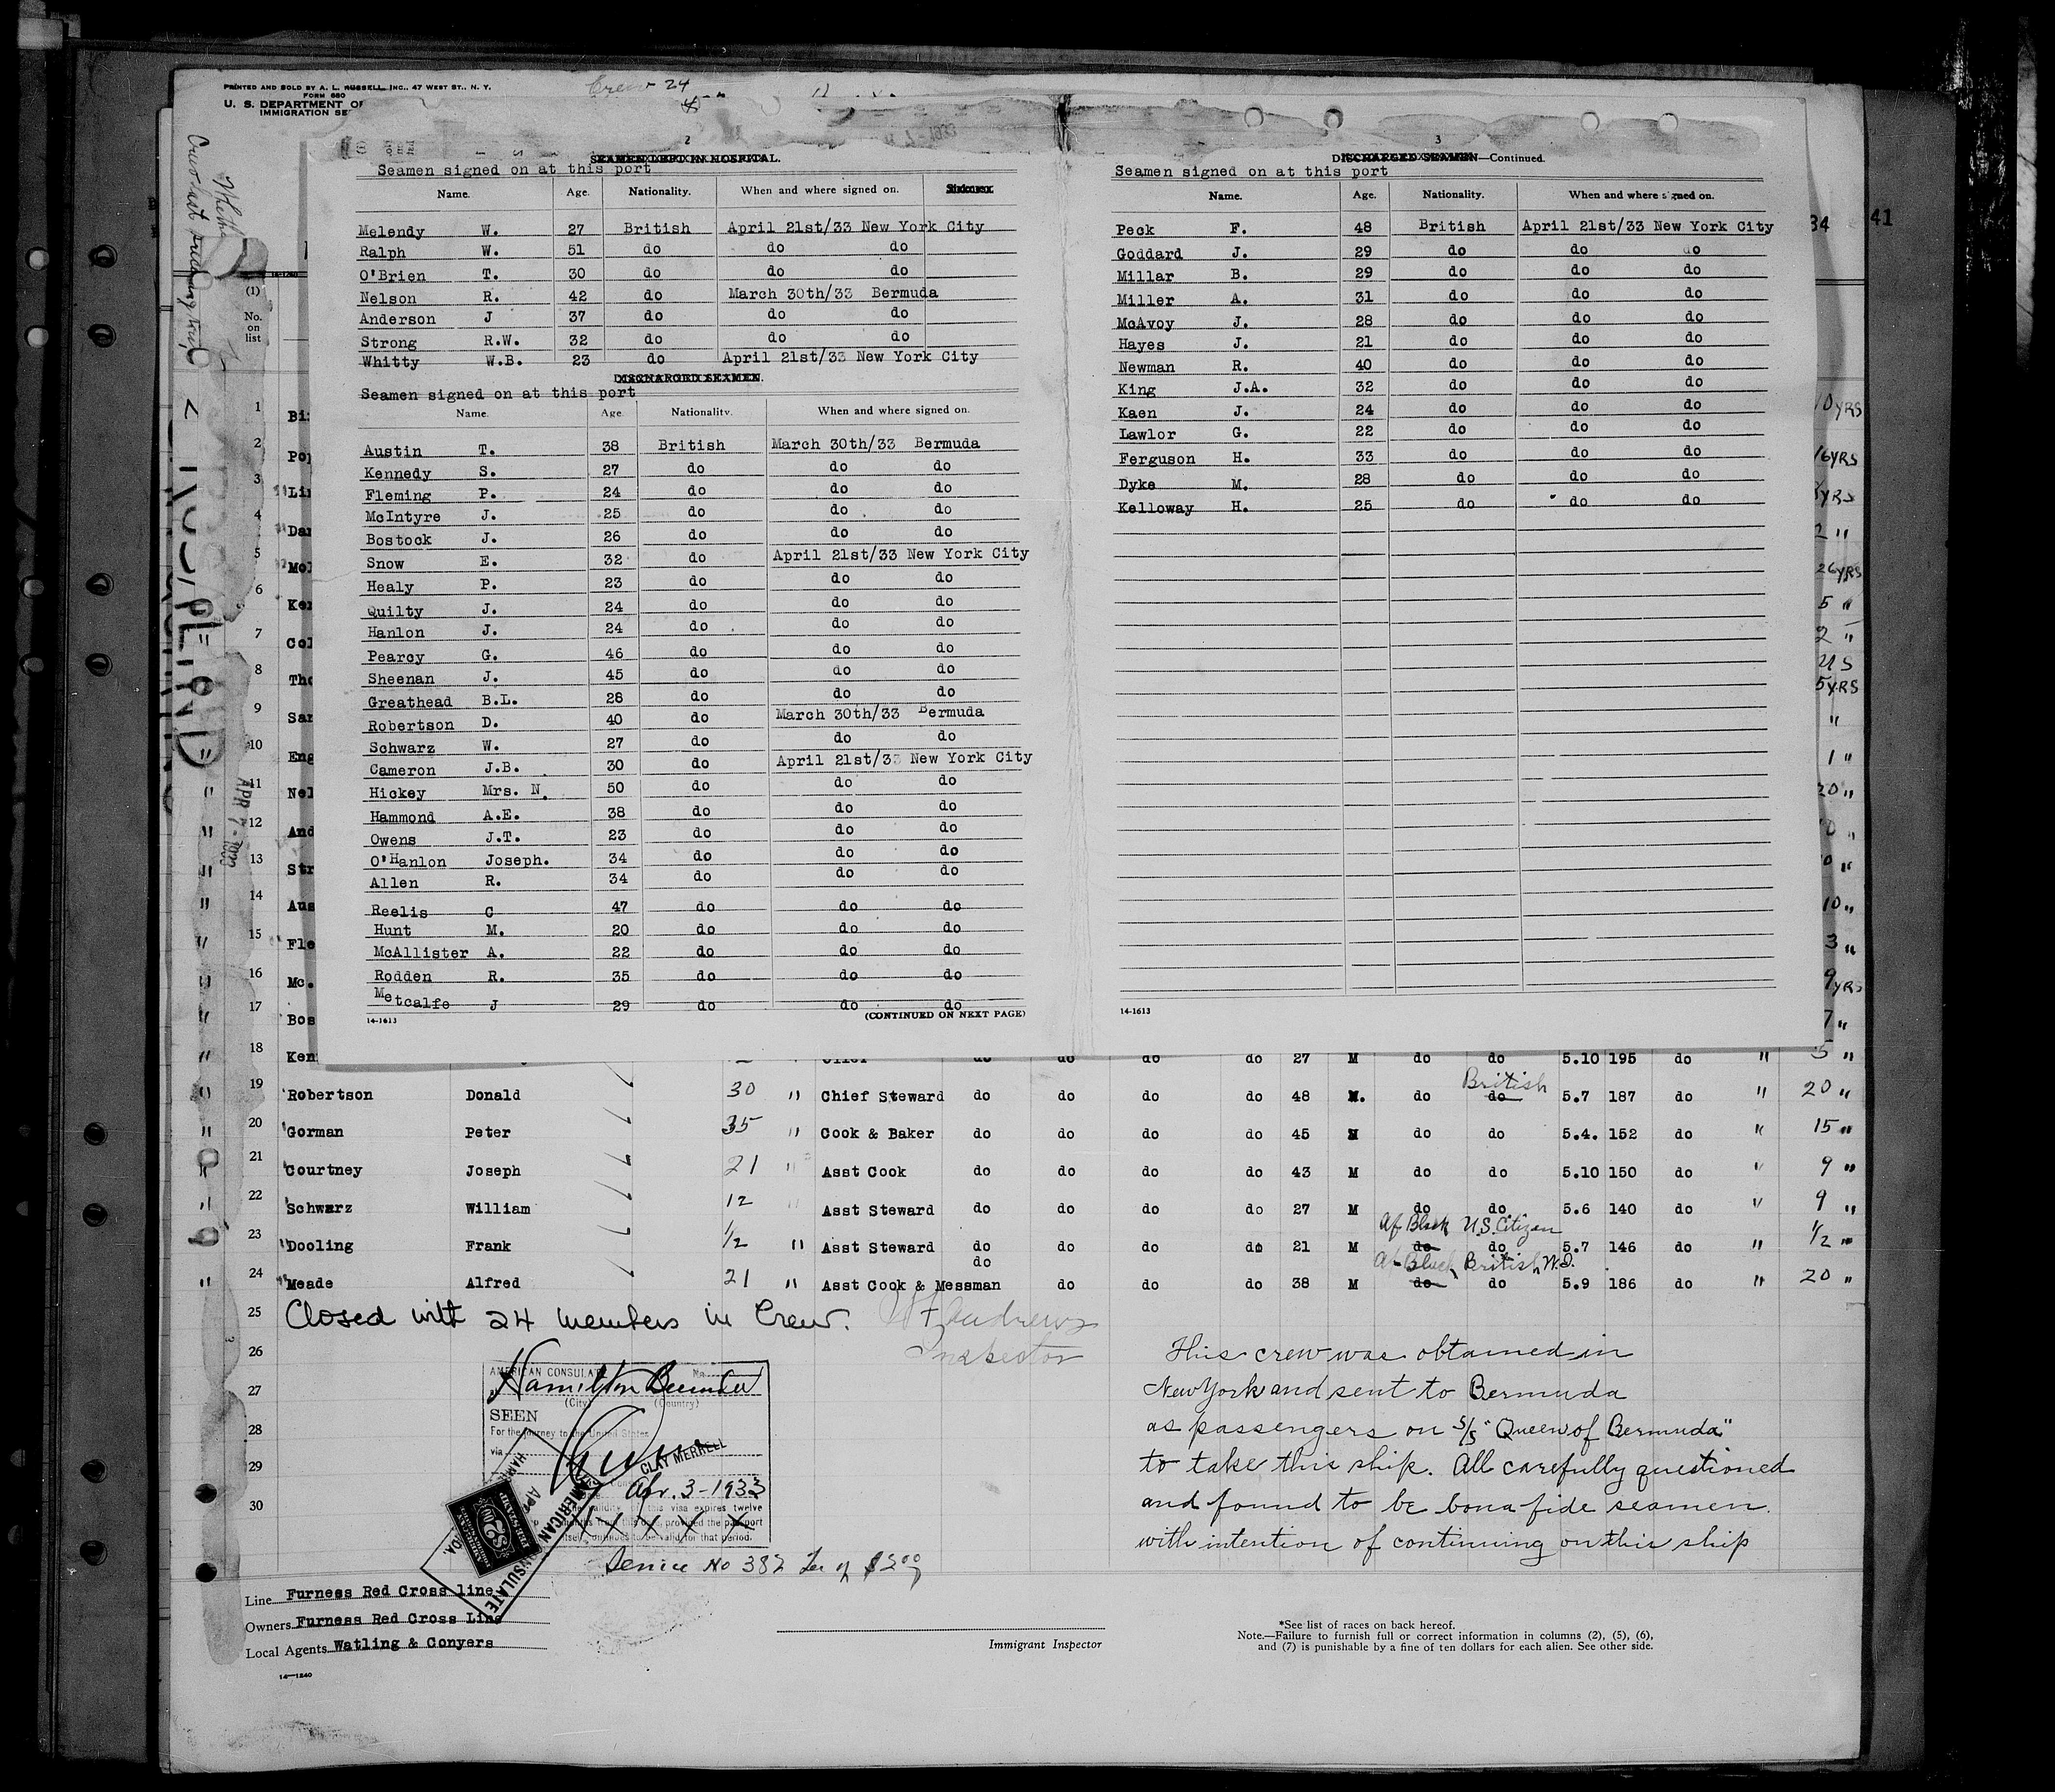 PRINTED AND SOLD BY A. L. RUSSELL, INC., 47 WEST ST., N. Y.
FORM 680
U. S. DEPARTMENT OF
IMMIGRATION SE
Crew 24
2
SEAMEN LEFT IN HOSPITAL.
Seamen signed on at this port
Name. Age. Nationality. When and where signed on.
Melendy W. 27 British April 21st/33 New York City
Ralph W. 51 do do do
O'Brien T. 30 do do do
Nelson R. 42 do March 30th/33 Bermuda
Anderson J 37 do do do
Strong R.W. 32 do do do
Whitty W.B. 23 do April 21st/33 New York City
DISCHARGED SEAMEN.
Seamen signed on at this port
Name. Age. Nationality. When and where signed on.
Austin T. 38 British March 30th/33 Bermuda
Kennedy S. 27 do do do
Fleming P. 24 do do do
McIntyre J. 25 do do do
Bostock J. 26 do do do
Snow E. 32 do April 21st/33 New York City
Healy P. 23 do do do
Quilty J. 24 do do do
Hanlon J. 24 do do do
Pearcy G. 46 do do do
Sheenan J. 45 do do do
Greathead B.L. 28 do do do
Robertson D. 40 do March 30th/33 Bermuda
Schwarz W. 27 do do do
Cameron J.B. 30 do April 21st/33 New York City
Hickey Mrs. N. 50 do do do
Hammond A.E. 38 do do do
Owens J.T. 23 do do do
O'Hanlon Joseph. 34 do do do
Allen R. 34 do do do
Reelis C 47 do do do
Hunt M. 20 do do do
McAllister A. 22 do do do
Rodden R. 35 do do do
Metcalfe J 29 do do do
14-1613 (CONTINUED ON NEXT PAGE)
3
DISCHARGED SEAMEN—Continued.
Seamen signed on at this port
Name. Age. Nationality. When and where signed on.
Peck F. 48 British April 21st/33 New York City
Goddard J. 29 do do do
Millar B. 29 do do do
Miller A. 31 do do do
McAvoy J. 28 do do do
Hayes J. 21 do do do
Newman R. 40 do do do
King J.A. 32 do do do
Kaen J. 24 do do do
Lawlor G. 22 do do do
Ferguson H. 33 do do do
Dyke M. 28 do do do
Kelloway H. 25 do do do
14-1613
34 41
(1)
No.
on
list
1 Bi 10 YRS
2 Pop 16 YRS
3 Li YRS
4 Dan 2 "
5 Mol 26 YRS
6 Ken 5 "
7 Col 2 "
8 Tho 5 YRS
9 San "
10 Eng 1 "
11 Nel 20 "
12 And "
13 Str "
14 Aus 10 "
15 Fle 3 "
16 Mc. 9 YRS
17 Bos 7 "
18 Ken do do do do 27 M do do 5.10 195 do " 5 "
19 Robertson Donald 30 " Chief Steward do do do do 48 M. do do British 5.7 187 do " 20 "
20 Gorman Peter 35 " Cook & Baker do do do do 45 M do do 5.4. 152 do " 15 "
21 Courtney Joseph 21 " Asst Cook do do do do 43 M do do 5.10 150 do " 9 "
22 Schwarz William 12 " Asst Steward do do do do 27 M do do 5.6 140 do " 9 "
Af Black U.S. Citizen
23 Dooling Frank 1/2 " Asst Steward do do do do 21 M do do 5.7 146 do " 1/2 "
Af Black British W.I.
24 Meade Alfred 21 " Asst Cook & Messman do do do do 38 M do do 5.9 186 do " 20 "
25 Closed with 24 members in Crew. Andrews
26 Inspector
27
28
29
30
This crew was obtained in
New York and sent to Bermuda
as passengers on S/S "Queen of Bermuda"
to take this ship. All carefully questioned
and found to be bona fide seamen.
with intention of continuing on this ship
AMERICAN CONSULATE No.
Hamilton Bermuda
(City) (Country)
SEEN
For the journey to the United States
via
CLAY MERRELL
Apr. 3-1933
validity of this visa expires twelve
months from this date, provided the passport
itself continues to be valid for that period.
AMERICAN CONSULATE
Service No 382 Fee of $2.00
Line Furness Red Cross line
Owners Furness Red Cross Line
Local Agents Watling & Conyers
14—1240
Immigrant Inspector
*See list of races on back hereof.
Note.—Failure to furnish full or correct information in columns (2), (5), (6),
and (7) is punishable by a fine of ten dollars for each alien. See other side.